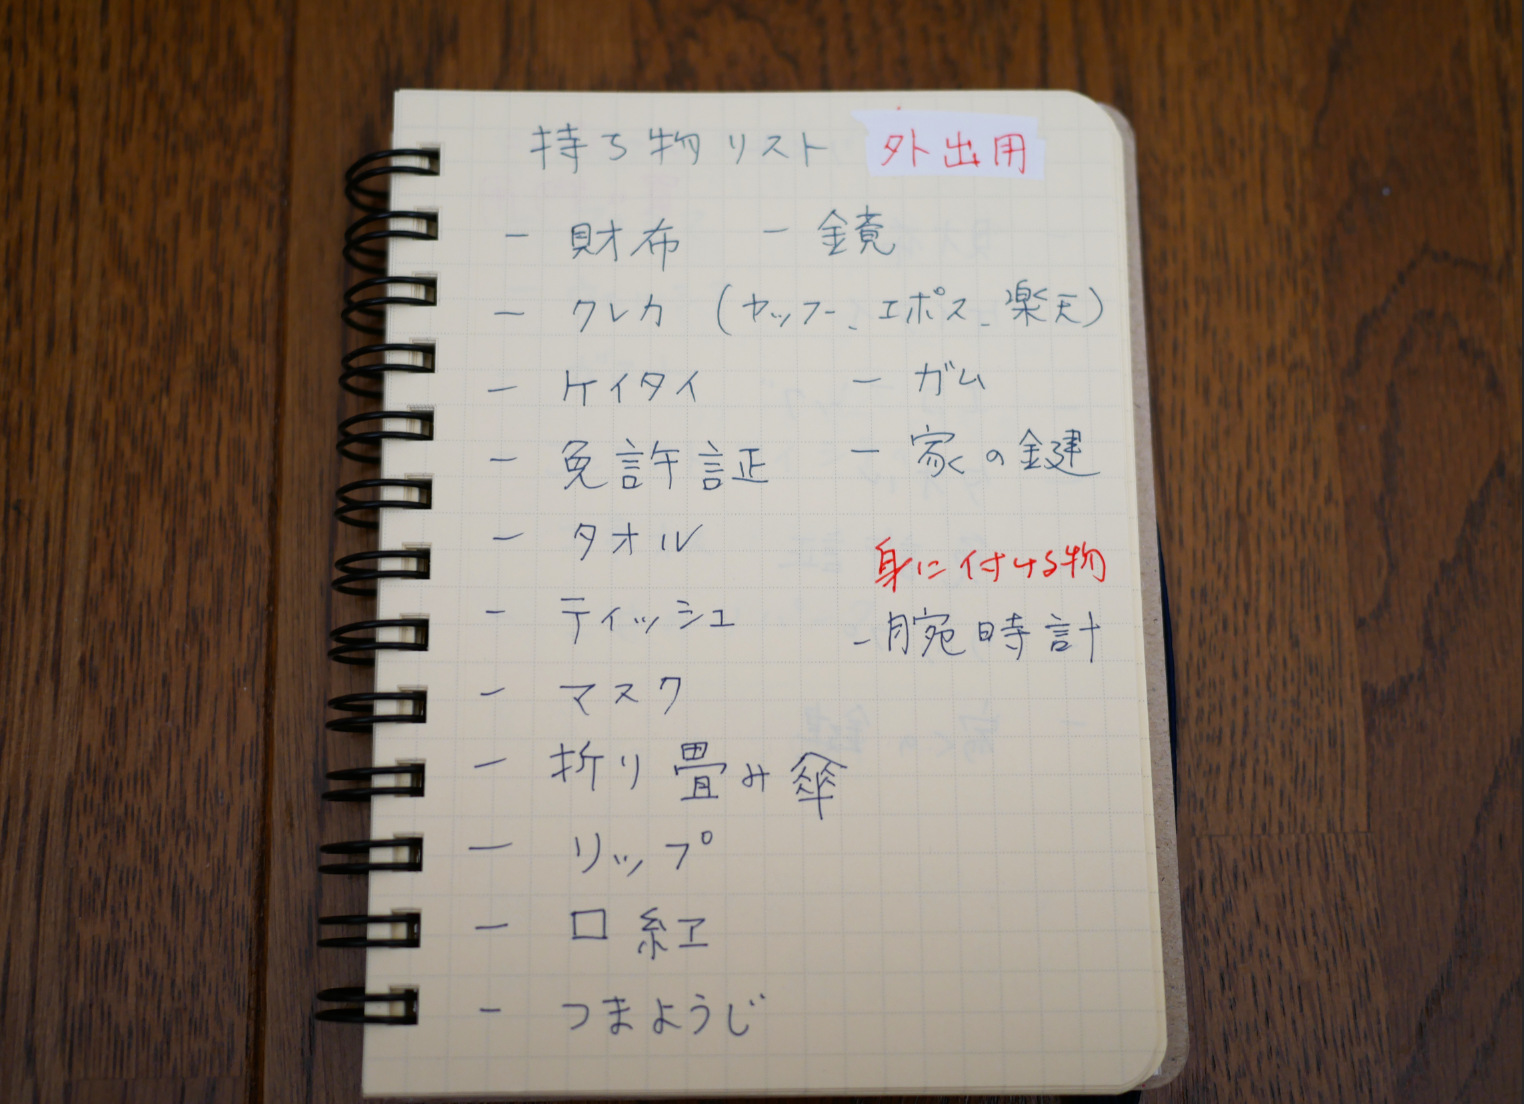 持ち物リスト 外出用
- 財布 - 鏡
- クレカ (ヤッフー、エポス、楽天)
- ケイタイ - ガム
- 免許証 - 家の鍵
- タオル
身に付ける物
- ティッシュ - 腕時計
- マスク
- 折り畳み傘
- リップ
- 口紅
- つまようじ